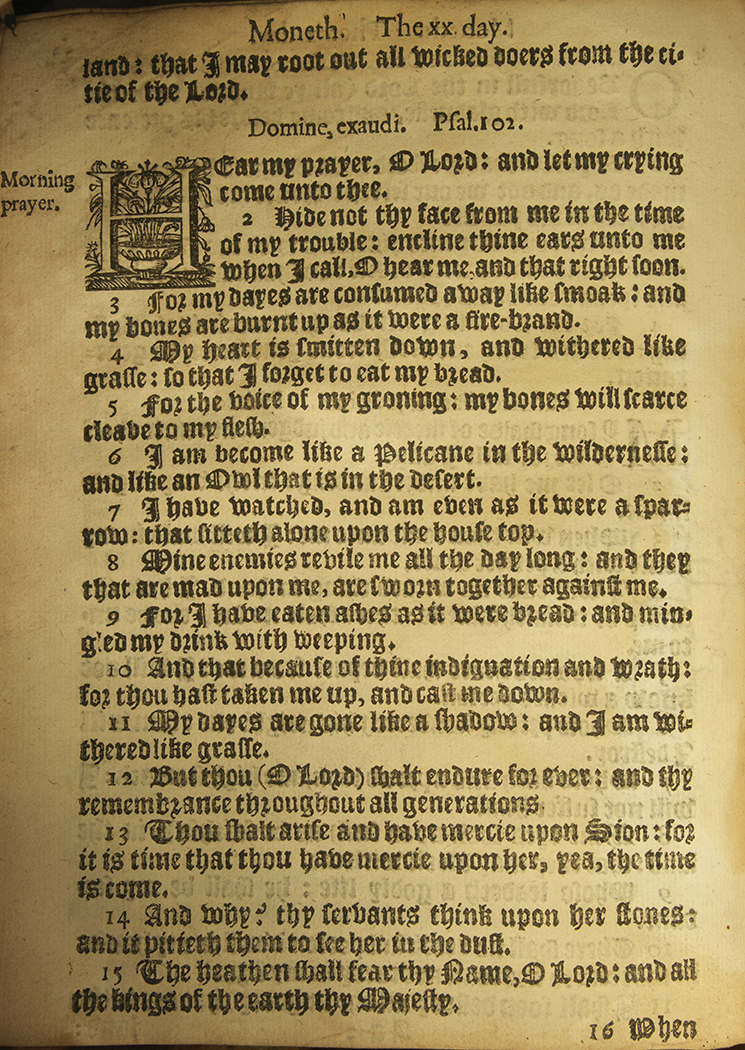 Moneth. The xx. day.
land: that I may root out all wicked doers from the ci-
tie of the Lord.
Domine, exaudi. Psal. 102.
Morning
prayer.
HEar my prayer, O Lord: and let my crying
come unto thee.
2 Hide not thy face from me in the time
of my trouble: encline thine ears unto me
when I call, O hear me, and that right soon.
3 For my dayes are consumed away like smoak: and
my bones are burnt up as it were a fire-brand.
4 My heart is smitten down, and withered like
grasse: so that I forget to eat my bread.
5 For the voice of my groning: my bones will scarce
cleave to my flesh.
6 I am become like a Pelicane in the wildernesse:
and like an Owl that is in the desert.
7 I have watched, and am even as it were a spar-
row: that sitteth alone upon the house top.
8 Mine enemies revile me all the day long: and they
that are mad upon me, are sworn together against me.
9 For I have eaten ashes as it were bread: and min-
gled my drink with weeping.
10 And that because of thine indignation and wrath:
for thou hast taken me up, and cast me down.
11 My dayes are gone like a shadow: and I am wi-
thered like grasse.
12 But thou (O Lord) shalt endure for ever: and thy
remembrance throughout all generations.
13 Thou shalt arise and have mercie upon Sion: for
it is time that thou have mercie upon her, yea, the time
is come.
14 And why? thy servants think upon her stones:
and it pitieth them to see her in the dust.
15 The heathen shall fear thy Name, O Lord: and all
the kings of the earth thy Majesty.
16 When